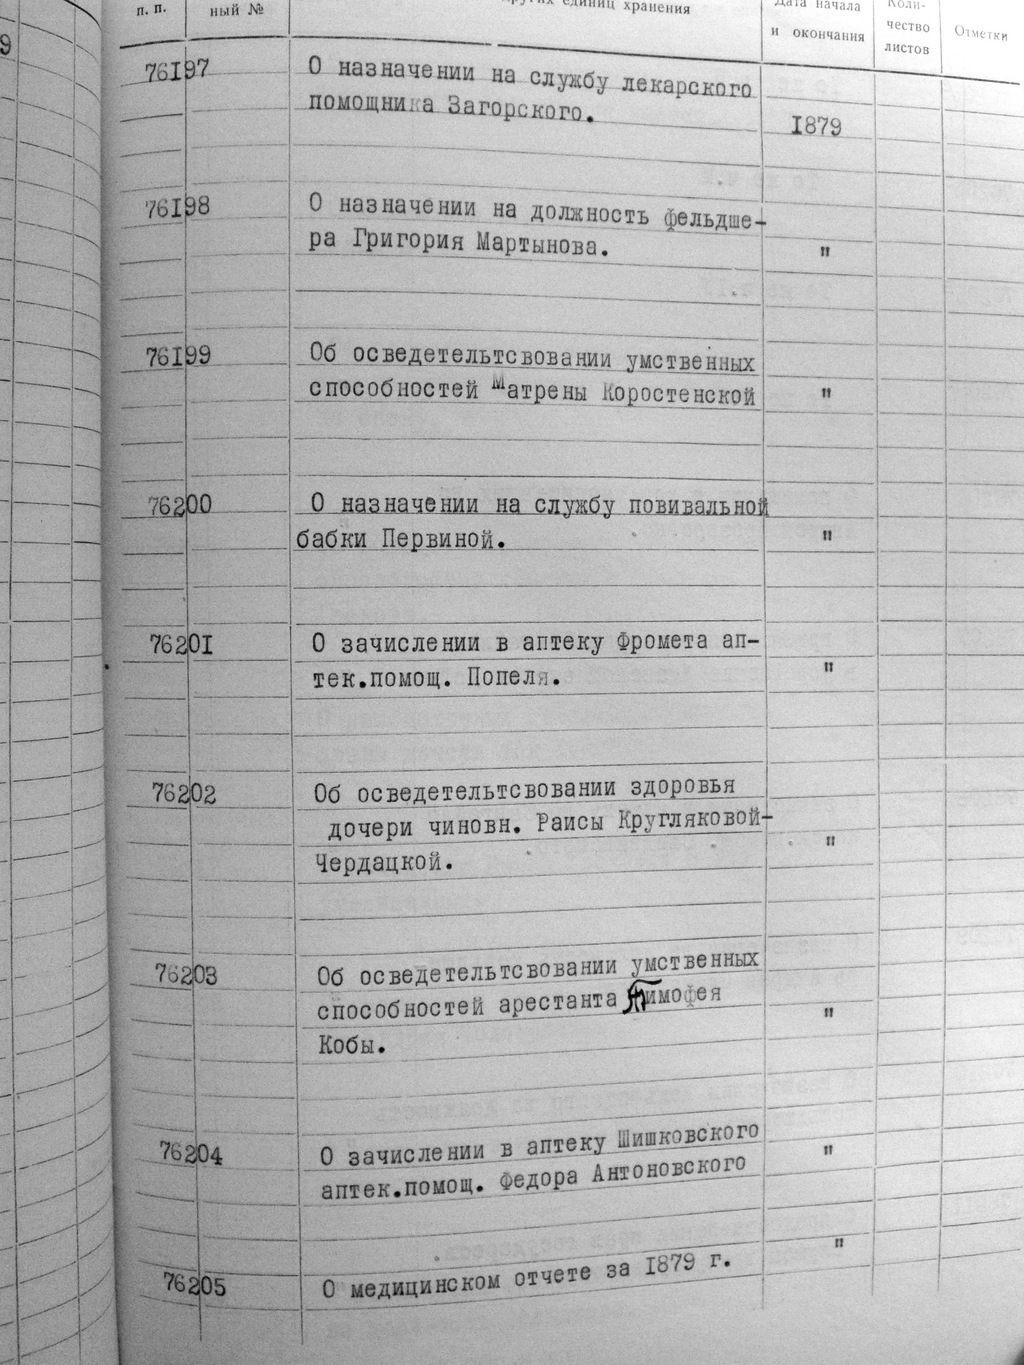 п. п.
ный №
других единиц хранения
Дата начала
и окончания
Коли-
чество
листов
Отметки
9
76I97
О назначении на службу лекарского
помощника Загорского.
I879
76I98
О назначении на должность фельдше-
ра Григория Мартынова.
"
76I99
Об осведетельтсвовании умственных
способностей Матрены Коростенской
"
76200
О назначении на службу повивальной
бабки Первиной.
"
7620I
О зачислении в аптеку Фромета ап-
тек.помощ. Попеля.
"
76202
Об осведетельтсвовании здоровья
дочери чиновн. Раисы Кругляковой-
Чердацкой.
"
76203
Об осведетельтсвовании умственных
способностей арестанта Тимофея
Кобы.
"
76204
О зачислении в аптеку Шишковского
аптек.помощ. Федора Антоновского
"
76205
О медицинском отчете за I879 г.
"